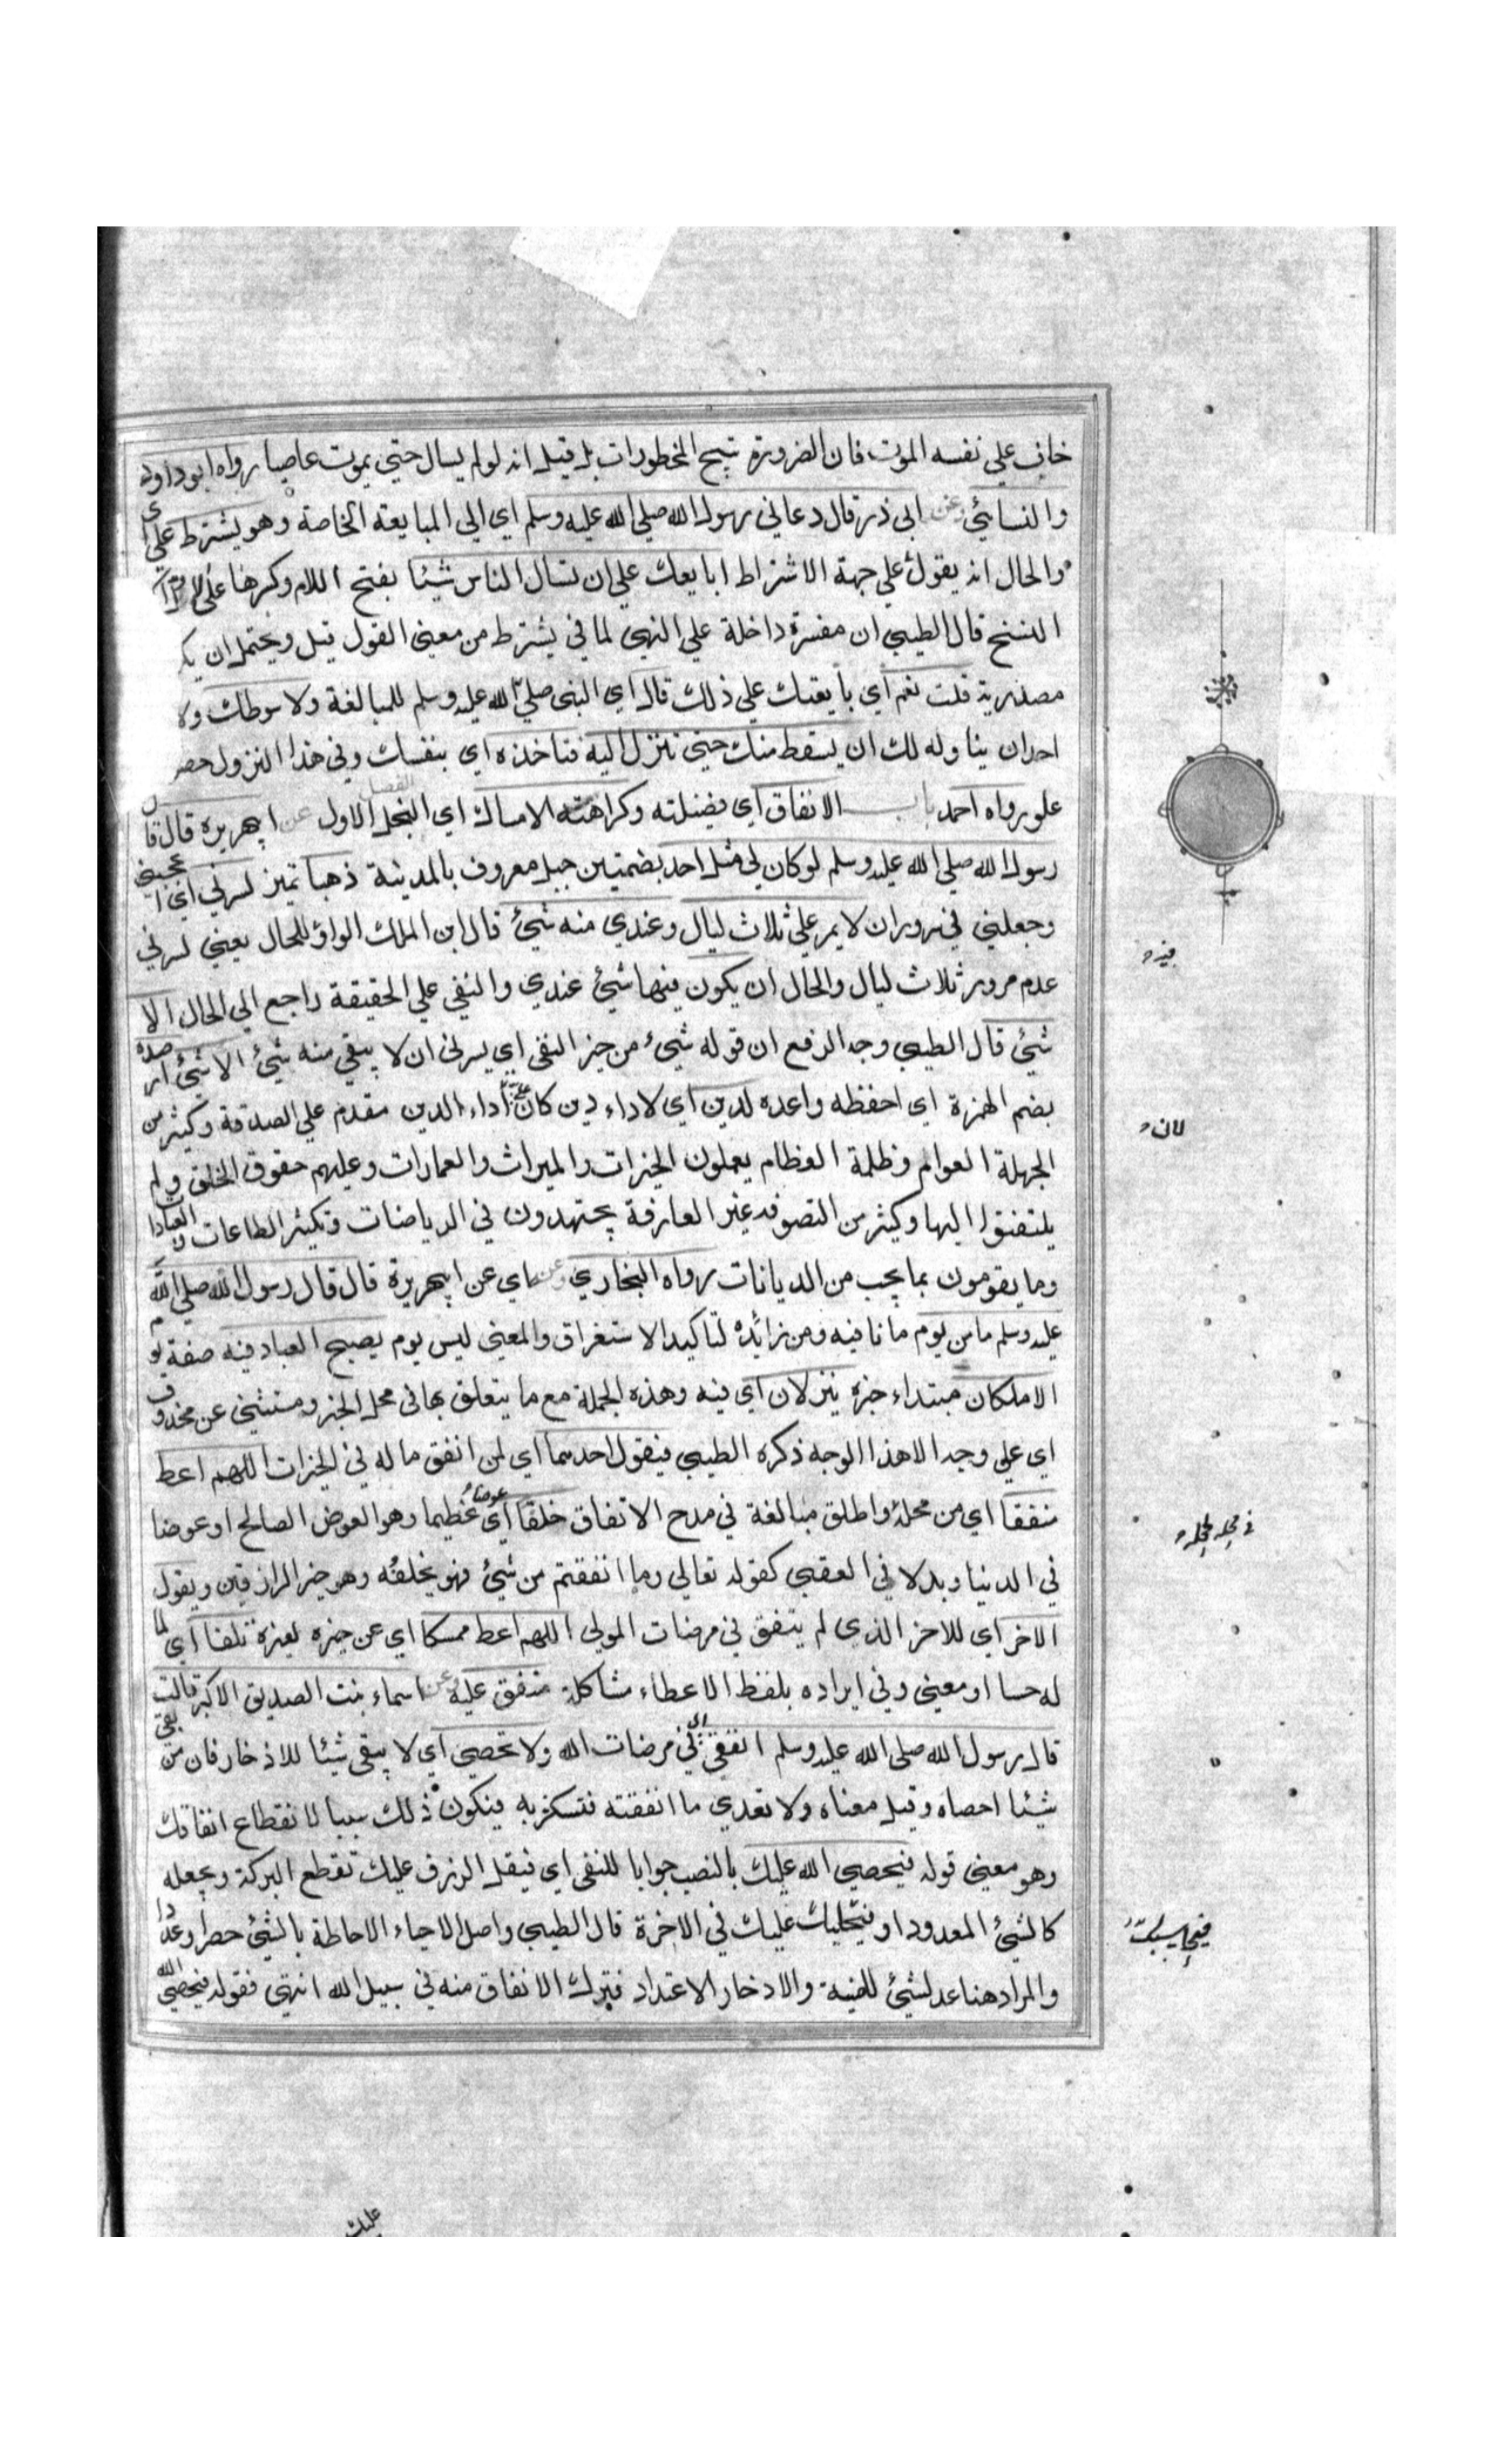 خاف علي نفسه الموت فان الضرورة تبيح المحظورات بل قيل انه لو لم يسال حتي يموت عاصيا رواه ابو داود
والنسائي وعن ابي ذر قال دعاني رسول الله صلي الله عليه وسلم اي الي المبايعة الخاصة وهو يشترط علي
والحال انه يقول علي جهة الاشتراط ابايعك علي ان تسال الناس شيئا بفتح اللام وكرهنا علي
النسخ قال الطيبي ان مفسرة داخلة علي النهي لما في يشترط من معني القول قيل ويحتمل ان
مصدرية قلت نعم اي بايعتك علي ذلك قال اي النبي صلي الله عليه وسلم للمبالغة ولا سوطك ولا
احدان يناوله لك ان يسقط منك حتي تنزل اليه فتاخذه اي بنفسك وفي هذا النزول حصر
علو رواه احمد باب الانفاق اي فضيلته وكراهته الامساك اي البخل الفصل الاول عن ابي هريرة قال قال
رسول الله صلي الله عليه وسلم لو كان لي مثل احد بضمتين جبل معروف بالمدينة ذهبا تميز لسرني اي اعجبني
وجعلني في سرور ان لا يمر علي ثلاث ليال وعندي منه شيئ قال ابن الملك الواو للحال يعني لسرني
عدم مرور ثلاث ليال والحال ان يكون فيها شيئ عندي والنفي علي الحقيقة راجع الي الحال الا
شيئ قال الطيبي وجه الرفع ان قوله شيئ من حيز النفي اي يسرني ان لا يبقي منه شيئ الا شيئ ارصده
بضم الهمزة اي احفظه واعده لدين اي لاداء دين كان علي اداء الدين مقدم علي الصدقة وكثير من
الجهلة العوام وظلمة العظام يعملون الخيرات والميراث والعمارات وعليهم حقوق الخلق ولم
يلتفتوا اليها وكثير من التصوفه غير العارفة يجتهدون في الرياضات وتكثير الطاعات والعبادات
وما يقومون بما يجب من الديانات رواه البخاري وعنه اي عن ابي هريرة قال قال رسول الله صلي الله
عليه وسلم ما من يوم ما نافيه ومن زائده لتاكيد الاستغراق والمعني ليس يوم يصبح العباد فيه صفة يوم
الا ملكان مبتداء خبره ينزلان اي فيه وهذه الجملة مع ما يتعلق بها في محل الخبر ومستثني عن محذوف
اي علي وجه الا هذا الوجه ذكره الطيبي فيقول احدهما اي لمن انفق ماله في الخيرات اللهم اعط
منفقا اي من محله واطلق مبالغة في مدح الانفاق خلفا اي عوضا عظيما وهو العوض الصالح او عوضا
في الدنيا وبدلا في العقبي كقوله تعالي وما انفقتم من شيئ فهو يخلفه وهو خير الرازقين ويقول
الاخر اي للاخر الذي لم يتفق في مرضات المولي اللهم اعط ممسكا اي عن خيره لغيره تلفا اي لما
له حسا او معني وفي ايراده بلفظ الاعطاء مشاكلة متفق عليه وعن اسماء بنت الصديق الاكبر قالت
قال رسول الله صلي الله عليه وسلم انفقي اي في مرضات الله ولا تحصي اي لا يبقي شيئا للاذخار فان من بقي
شيئا احصاه وقيل معناه ولا تعدي ما انفقته فتسكثر به فيكون ذلك سببا لانقطاع انفاقك
وهو معني قوله فيحصي الله عليك بالنصب جوابا للنفي اي فيقل الرزق عليك تقطع البركة ويجعله
كالشيئ المعدود او عليك في الاخرة قال الطيبي واصل الاحياء الاحاطة بالشيئ حصرا وعدا
والمراد هنا عد لشيئ للقنية والادخار الاعتداد فيترك الانفاق منه في سبيل الله انتهي فقوله فيحصي الله
لان
عليك